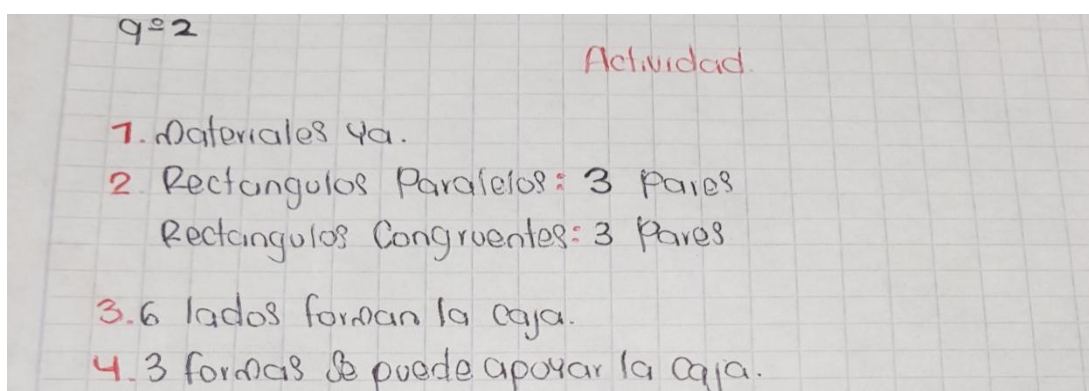 9º2
Actividad.
1. Materiales ya.
2. Rectangulos Paralelos: 3 pares
Rectangulos Congruentes: 3 pares
3. 6 lados forman la caja.
4. 3 formas se puede apoyar la caja.